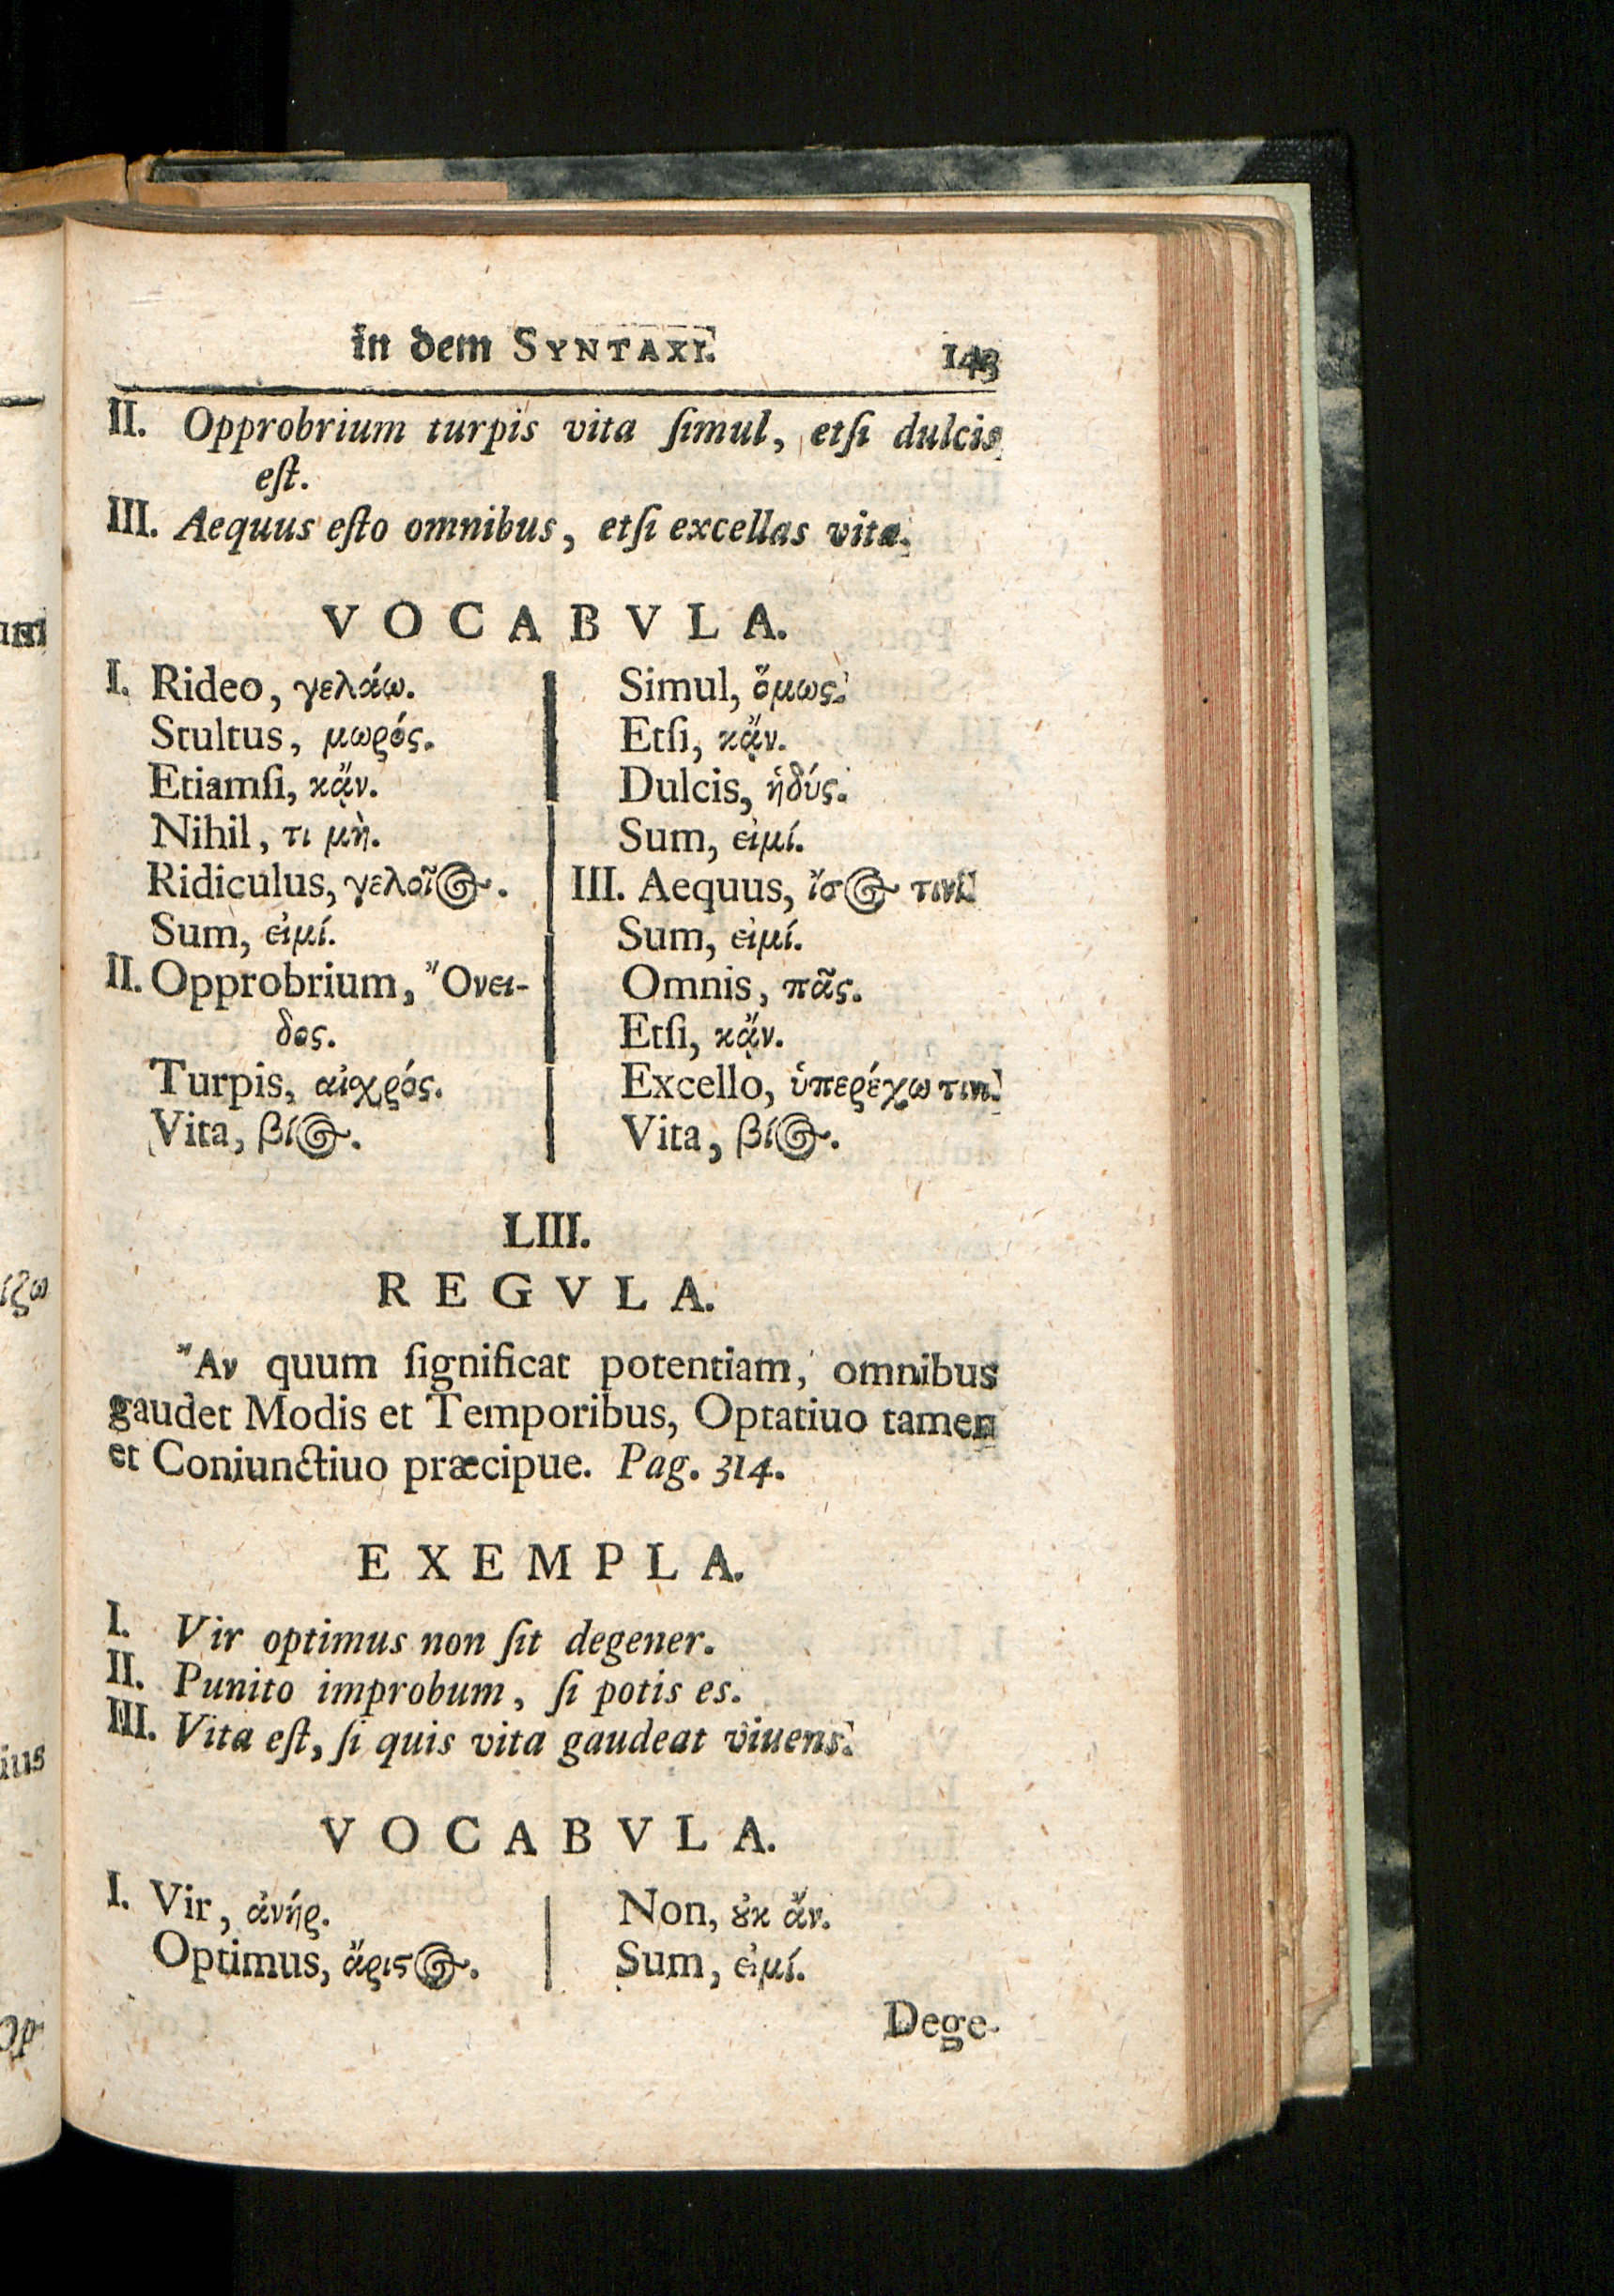 in dem SYNTAXI. 143
II. Opprobrium turpis vita ſimul, etſi dulcis
eſt.
III. Aequus eſto omnibus, etſi excellas vita.
VOCABVLA.
I. Rideo, γελάω.
Stultus, μωρός.
Etiamſi, κᾄν.
Nihil, τι μὴ.
Ridiculus, γελοῖος.
Sum, εἰμί.
II. Opprobrium, Ὄνει-
δος.
Turpis, αἰχρός.
Vita, βίος.
Simul, ὅμως.
Etſi, κᾄν.
Dulcis, ἡδύς.
Sum, εἰμί.
III. Aequus, ἴσος τινί.
Sum, εἰμί.
Omnis, πᾶς.
Etſi, κᾄν.
Excello, ὑπερέχω τιν.
Vita, βίος.
LIII.
REGVLA.
Ἂν quum ſignificat potentiam, omnibus
gaudet Modis et Temporibus, Optatiuo tamen
et Coniunctiuo præcipue. Pag. 314.
EXEMPLA.
I. Vir optimus non ſit degener.
II. Punito improbum, ſi potis es.
III. Vita eſt, ſi quis vita gaudeat viuens.
VOCABVLA.
I. Vir, ἀνήρ.
Optimus, ἄριϛος.
Non, ȣκ ἄν.
Sum, εἰμί.
Dege-
um
ίζω
ius
Op-